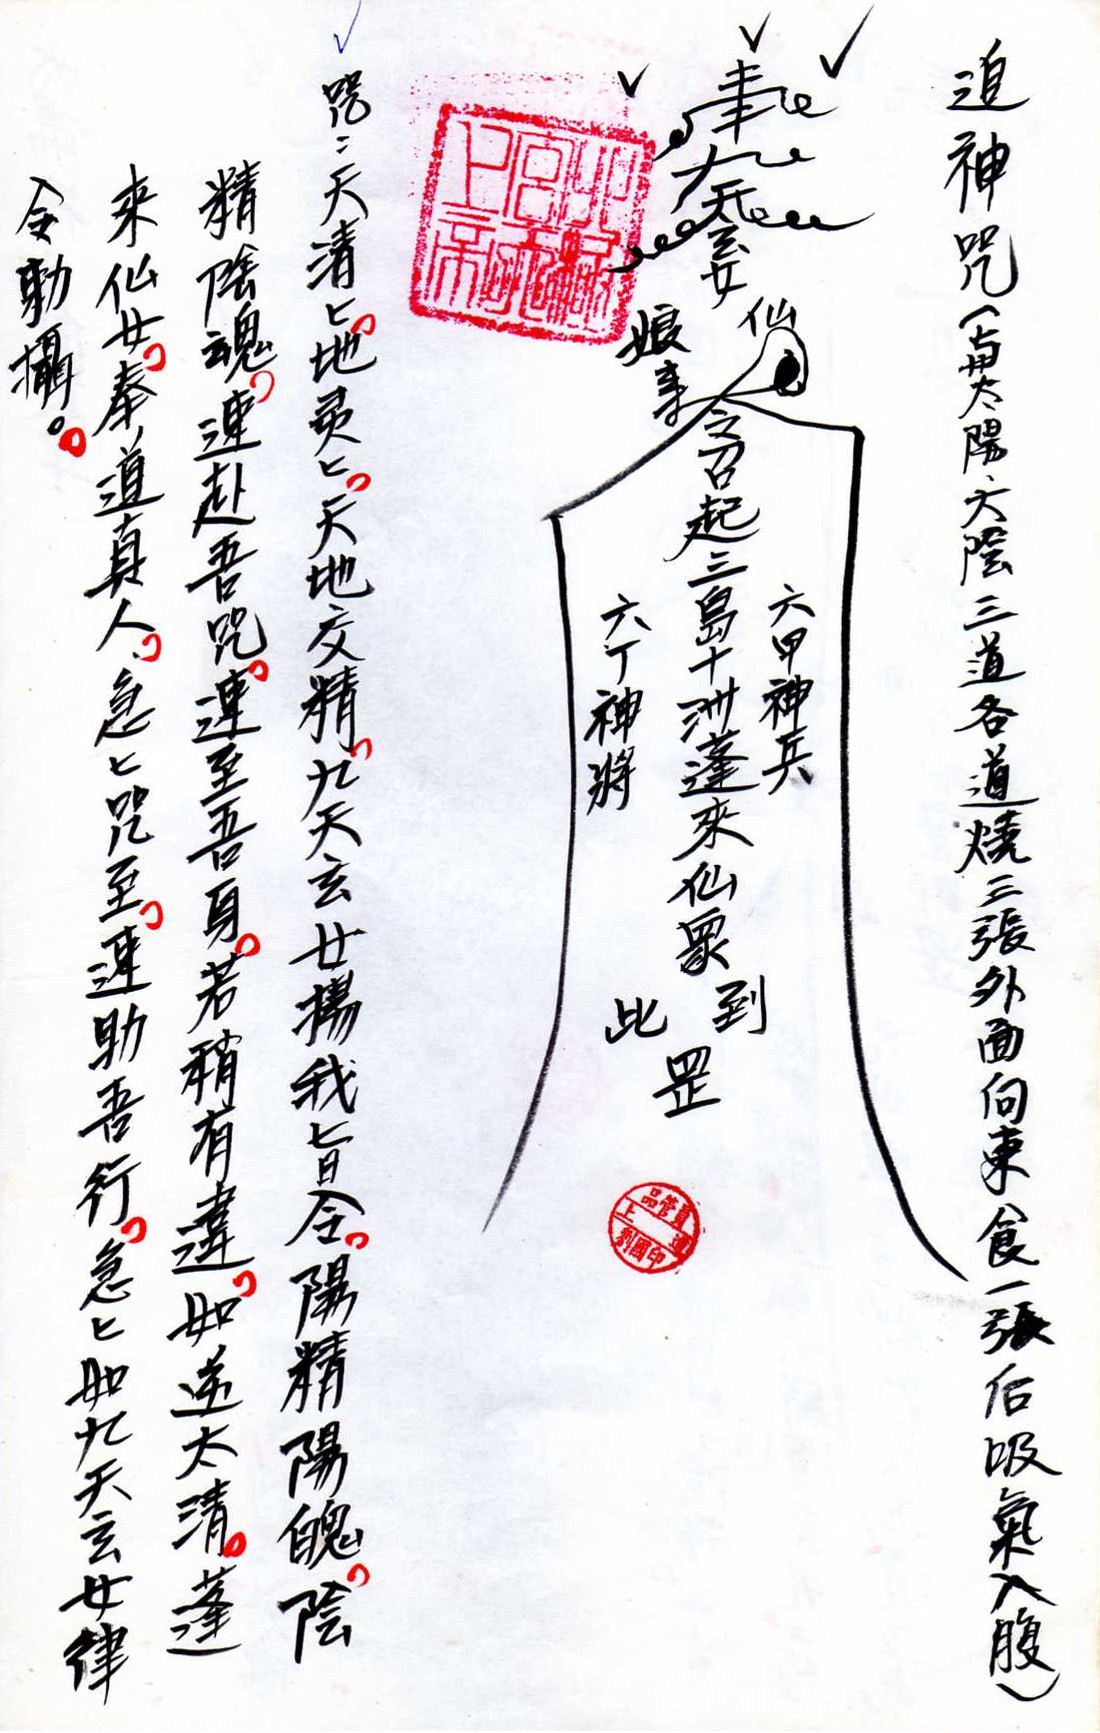 追神咒（每太陽、太陰三道各道燒三張外面向東食一張后吸氣入腹）
奉
九天玄女
仙
娘
令召起三島十洲蓬來仙眾
六甲神兵
六丁神將
到
此
罡
咒：天清〻地灵〻天地交精九天玄女揚我七日令陽精陽魄陰
精陰魂速赴吾咒速至吾身若稍有違如逆太清蓬
來仙女奉道真人、急〻咒至速助吾行急〻如九天玄女律
令勅攝。